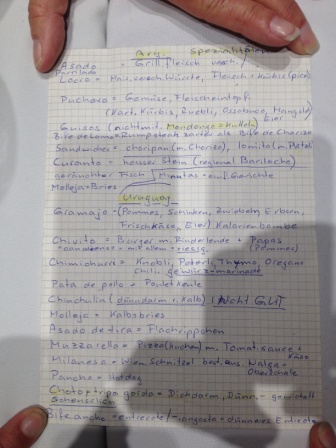 Arg. Spezialitäten
Asado = Grillfleisch versch.
Parillada
Locro = Mais, versch. Würste, Fleisch + Kürbis (pic.)
Puchero = Gemüse, Fleischeintopf
(Kart., Kürbis, Rüebli, Ossobuco,
Guisos (nicht mit Mondongo = Kutteln)
Eier
Bife de Lomo = Rumpsteak zarter als Bife de Chorizo
Sandwiches = choripan (m. Chorizo), lomito (m. Filet)
Curanto = heisser Stein (regional Bariloche)
geräuchter Fisch / Minutas = einf. Gerichte
Molleja = Bries
Uruguay
Gramajo = (Pommes, Schinken, Zwiebeln, Erbsen,
Frischkäse, Eier) Kalorienbombe
Chivito = Burger m. Rinderlende + Papas
"canadense" = mit allem = riesig (Pommes)
Chimichurri = Knobli, Peterli, Thymo, Oregano
Chili, gewürz-marinade
Pata de pollo = Pouletkeule
Chinchulin (dünndarm v. Kalb) ! Nicht Gut
Molleja = Kalbsbries
Asado de tira = Flachrippchen
Muzzarella = Pizza (Kuchen) m. Tomatsauce + Käse
Milanesa = Wien. Schnitzel best. aus Nalga = Oberschale
Pancho = Hotdog
Choto + tripa gorda = Dickdarm, Dünn-
scheusslich
Bife ancho = entrecote / - angosto = dünneres Entrecote